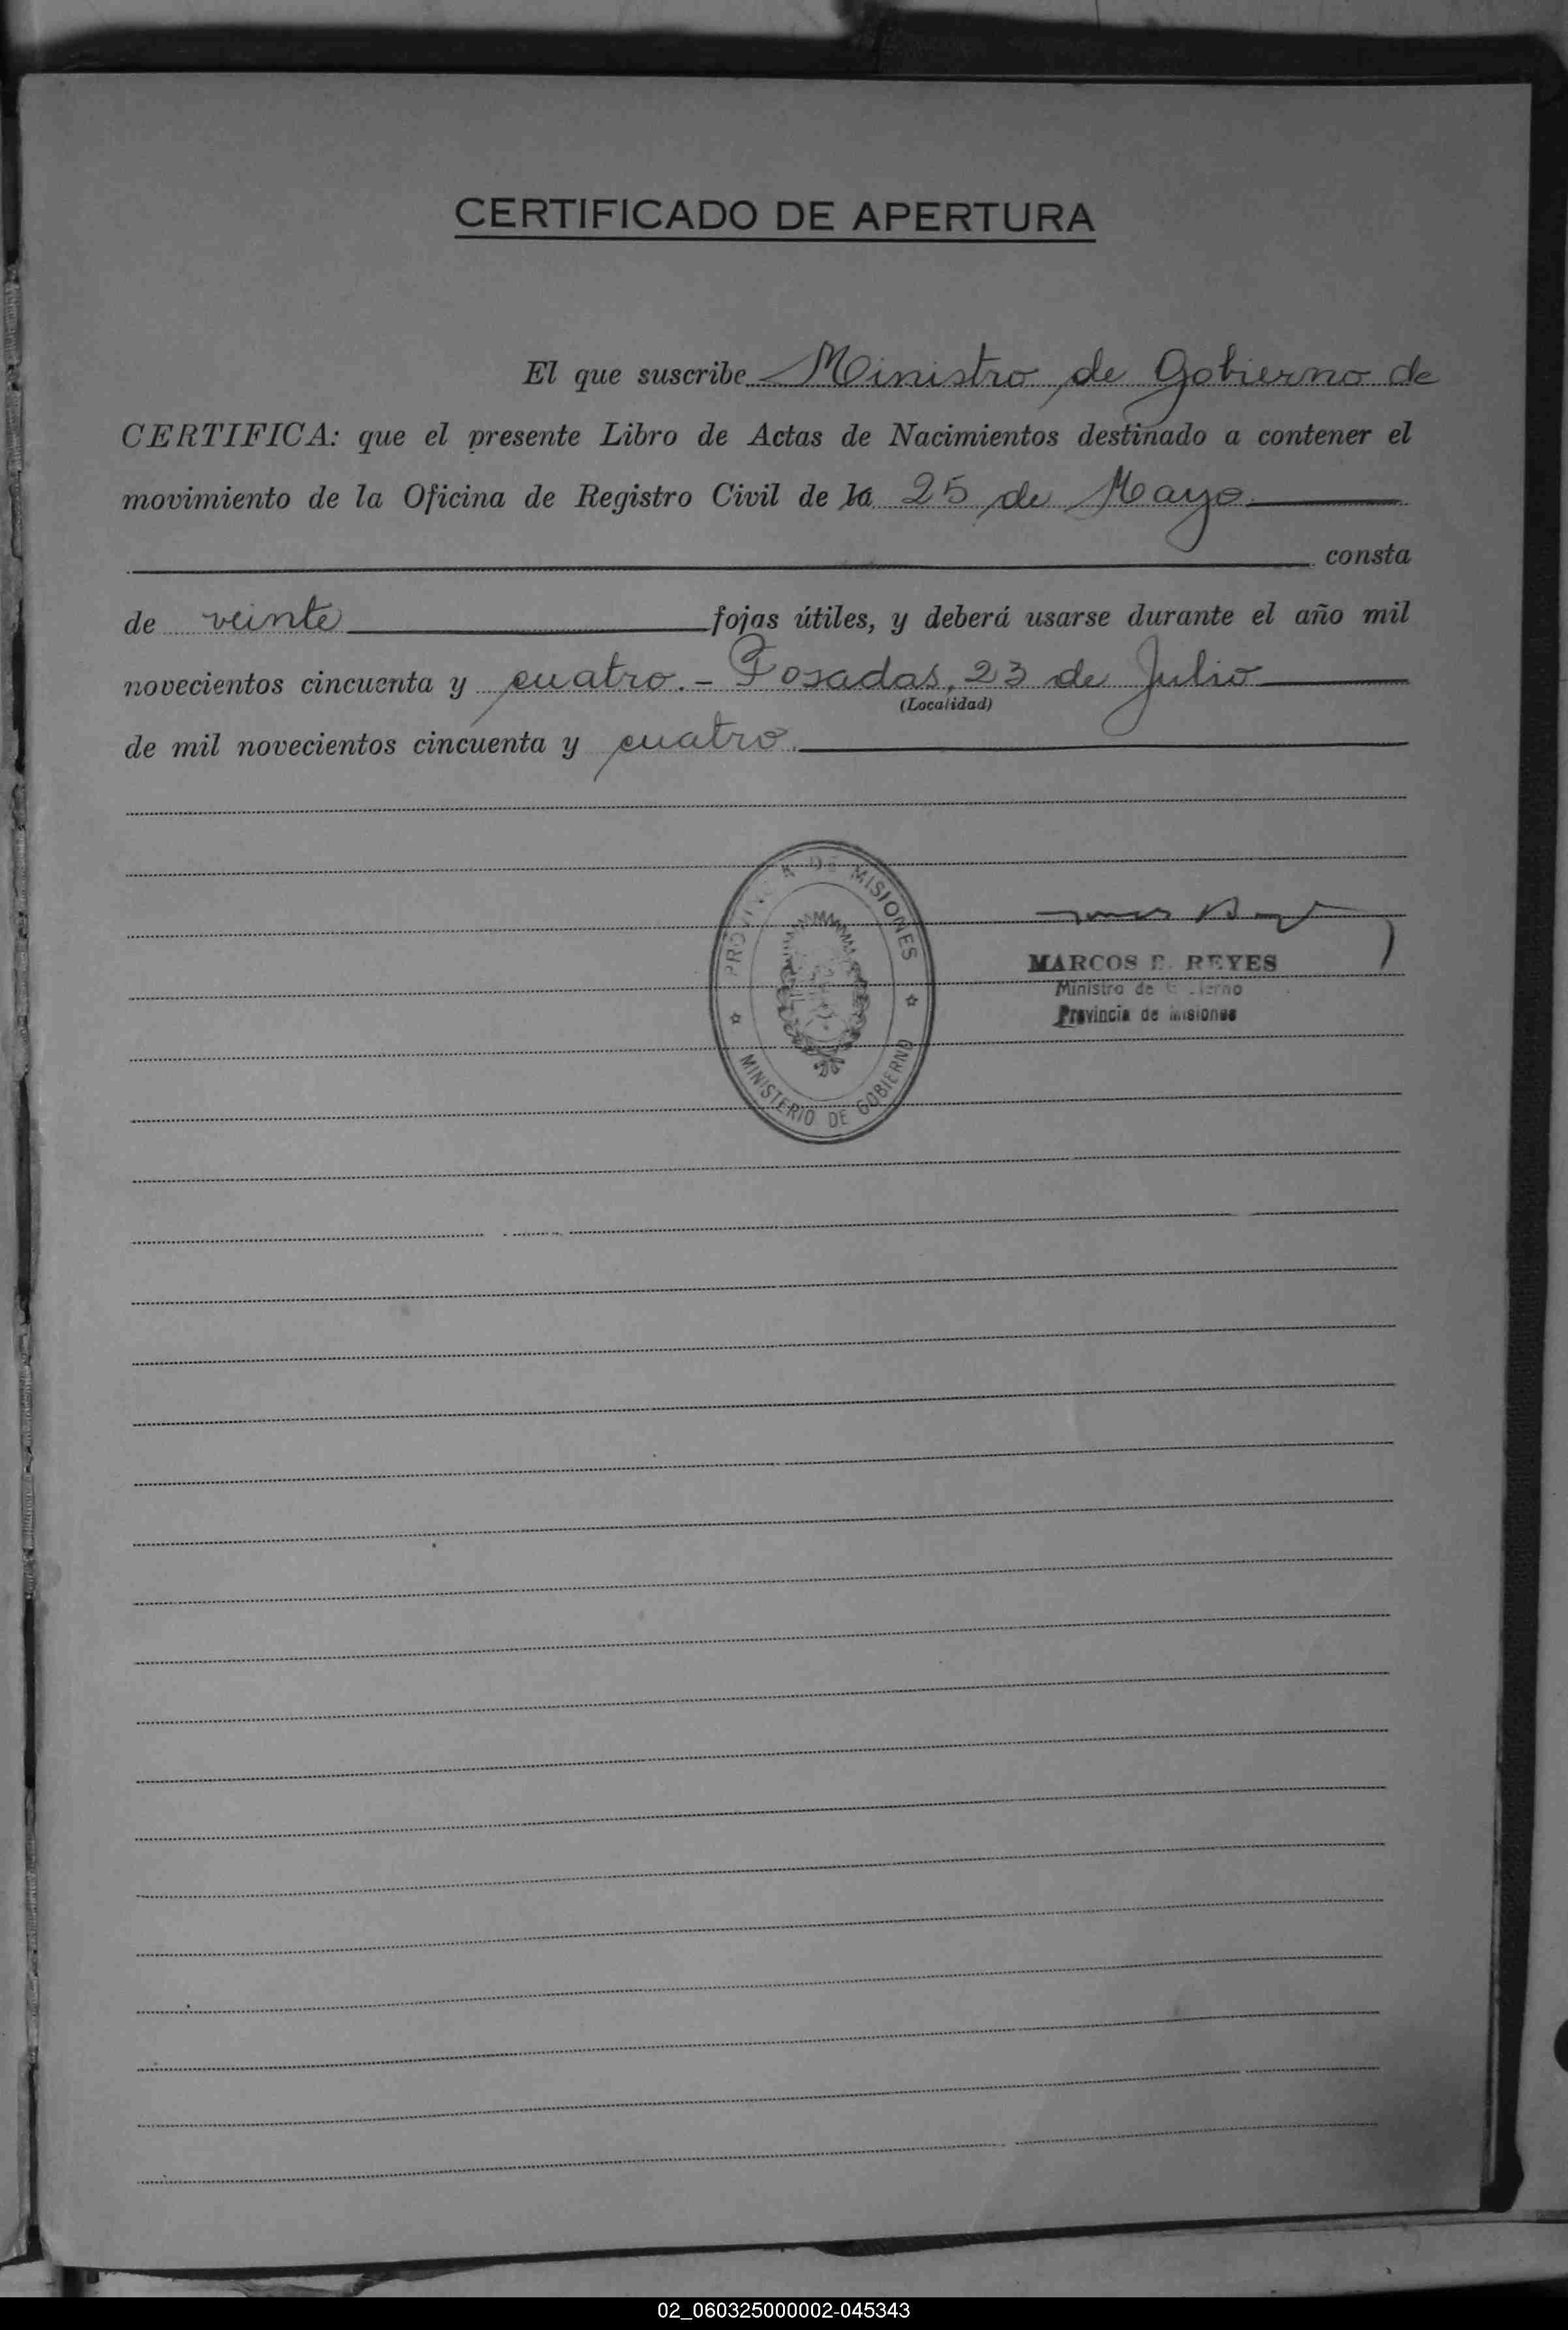 CERTIFICADO DE APERTURA
El que suscribe Ministro de Gobierno de
CERTIFICA: que el presente Libro de Actas de Nacimientos destinado a contener el
movimiento de la Oficina de Registro Civil de la 25 de Mayo
consta
de veinte fojas útiles, y deberá usarse durante el año mil
novecientos cincuenta y cuatro.- Posadas, 23 de Julio
(Localidad)
de mil novecientos cincuenta y cuatro.
PROVINCIA DE MISIONES
MINISTERIO DE GOBIERNO
MARCOS REYES
Ministro de Gobierno
Provincia de Misiones
02_060325000002-045343